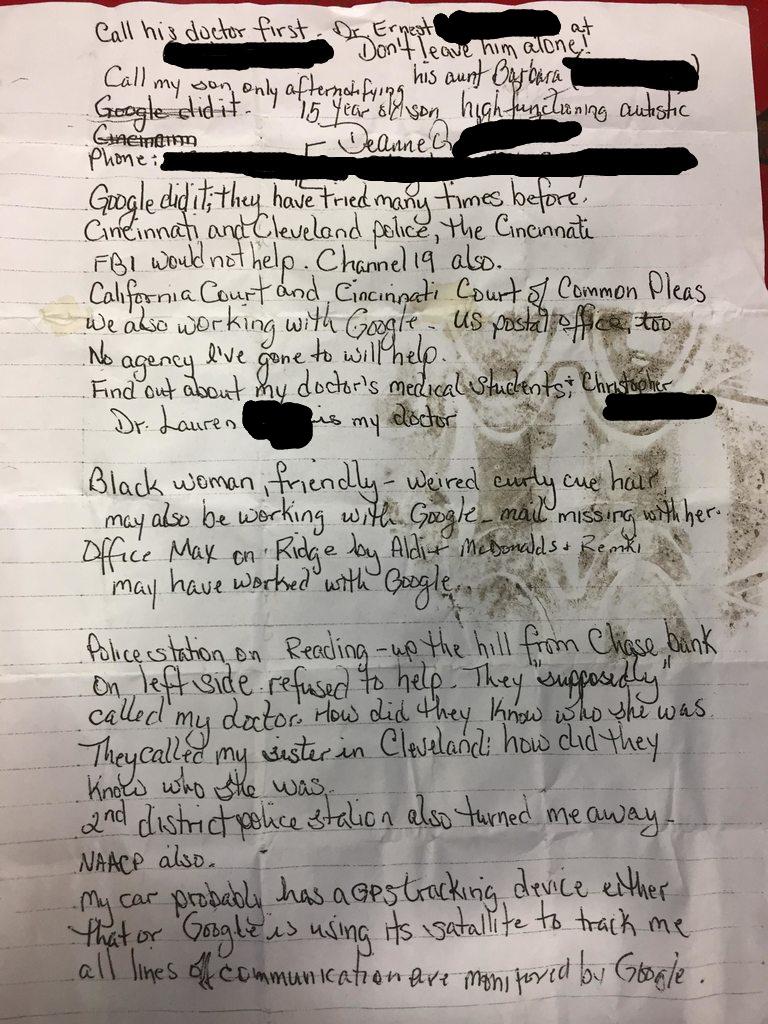 Call his doctor first - Dr. Ernest at
Don't leave him alone!
Call my son only after notifying his aunt Barbara (
Google did it. 15 year old son high-functioning autistic
Cincinnati Deanne
Phone:
Google did it; they have tried many times before!
Cincinnati and Cleveland police, the Cincinnati
FBI would not help. Channel 19 also.
California Court and Cincinnati Court of Common Pleas
we also working with Google - US postal office, too
No agency I've gone to will help.
Find out about my doctor's medical students; Christopher
Dr. Lauren is my doctor
Black woman, friendly - weired curly cue hair
may also be working with Google - mail missing with her.
Office Max on Ridge by Aldi + McDonalds + Remki
may have worked with Google.
Police station on Reading - up the hill from Chase bank
on left side refused to help. They "supposedly"
called my doctor. How did they know who she was.
They called my sister in Cleveland: how did they
know who she was.
2nd district police station also turned me away -
NAACP also.
My car probably has a GPS tracking device either
that or Google is using its satallite to track me
all lines of communication are monitored by Google.